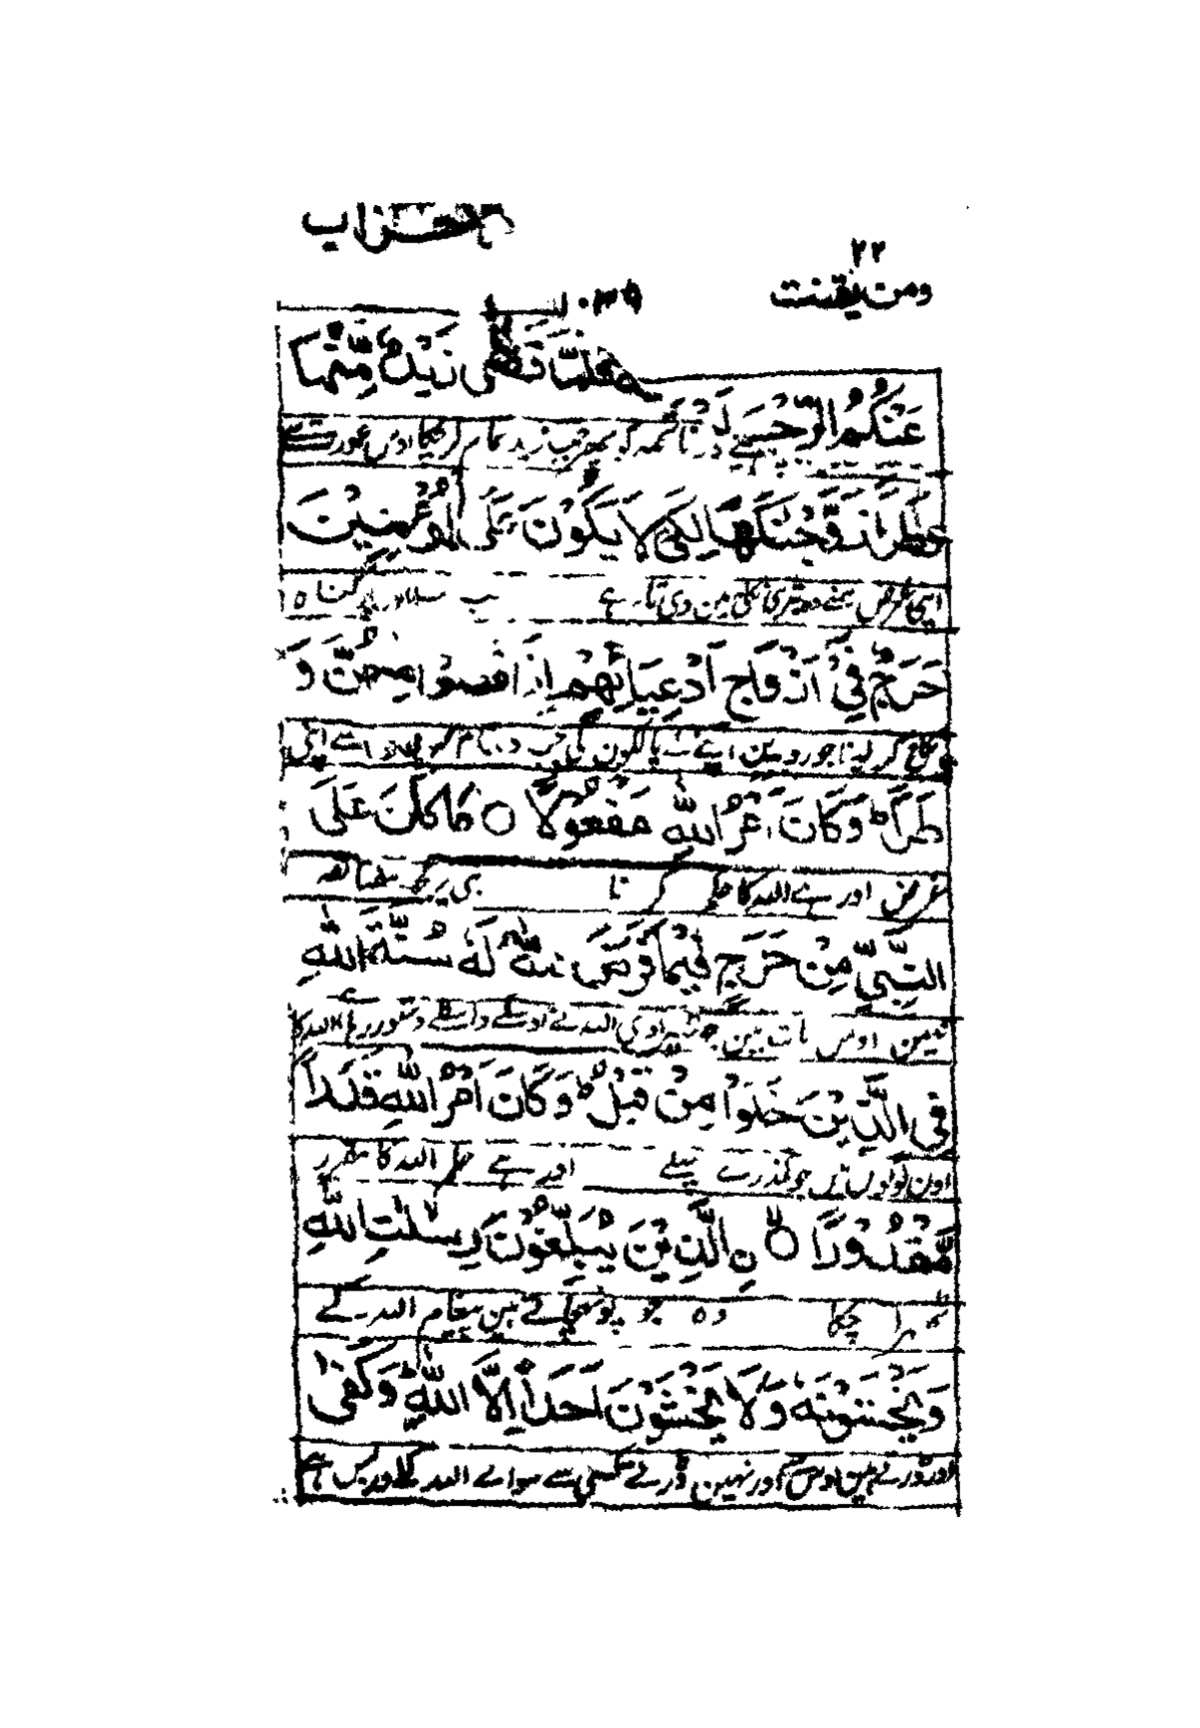 الاحزاب
٢٢
ومن يقنت
فَلَمَّا قَضٰى زَيْدٌ مِّنْهَا
عَنْكُمُ الرِّجْسَ
پھر جب زید تمام کر چکا اوس عورت سے
وَطَرًا زَوَّجْنٰكَهَا لِكَىْ لَا يَكُوْنَ عَلَى الْمُؤْمِنِيْنَ
اپنی غرض ہمنے وہ تیری نکاح مین دی تا نرہے سب مسلمانوں گناہ
حَرَجٌ فِىْٓ اَزْوَاجِ اَدْعِيَآئِهِمْ اِذَا قَضَوْا مِنْهُنَّ وَ
نکاح کر لینا جوروین اپنے لے پالکون کی جب وہ تمام کر اپنی
طَرًا ؕ وَكَانَ اَمْرُ اللّٰهِ مَفْعُوْلًا ○ مَا كَانَ عَلَى
غرض اور ہے اللہ کا حکم کرنا نبی پر کچھ مضائقہ
النَّبِىِّ مِنْ حَرَجٍ فِيْمَا فَرَضَ اللّٰهُ لَهٗ سُنَّةَ اللّٰهِ
نہین اوس بات مین جو ٹھیرا دی اللہ نے اوسکے واسطے دستور رہا اللہ کا
فِى الَّذِيْنَ خَلَوْا مِنْ قَبْلُ ؕ وَكَانَ اَمْرُ اللّٰهِ قَدَرًا
اون لوگون مین جو گذرے پہلے اور ہے حکم اللہ کا مقرر
مَّقْدُوْرًا ○ ۙ نِ الَّذِيْنَ يُبَلِّغُوْنَ رِسٰلٰتِ اللّٰهِ
ٹھہرا چکا وہ جو پہونچاتے ہین پیغام اللہ کے
وَيَخْشَوْنَهٗ وَلَا يَخْشَوْنَ اَحَدًا اِلَّا اللّٰهَ ؕ وَكَفٰى
اور ڈرتے ہین اوس سے اور نہین ڈرتے کسی سے سوائے اللہ کے اور بس ہے